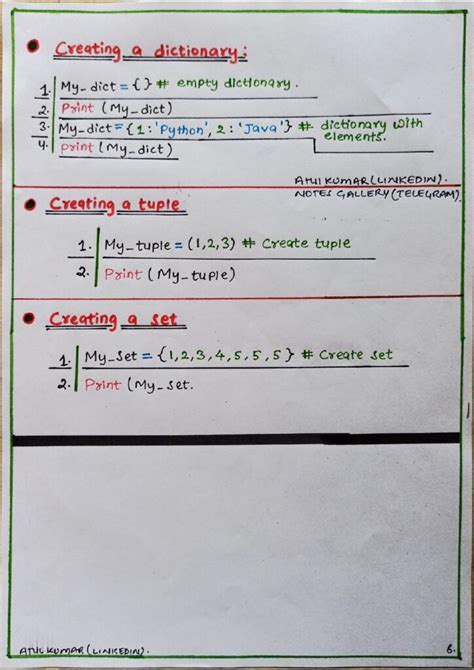 Creating a dictionary:
1. My_dict = { } # empty dictionary.
2. Print (My_dict)
3. My_dict = { 1 : 'Python', 2 : 'Java' } # dictionary with
elements.
4. print (My_dict)
ATUL KUMAR (LINKEDIN).
NOTES GALLERY (TELEGRAM).
Creating a tuple
1. My_tuple = (1,2,3) # Create tuple
2. Print (My_tuple)
Creating a set
1. My_Set = {1,2,3,4,5,5,5} # Create set
2. Print (My_Set.
ATUL KUMAR (LINKEDIN).
6.